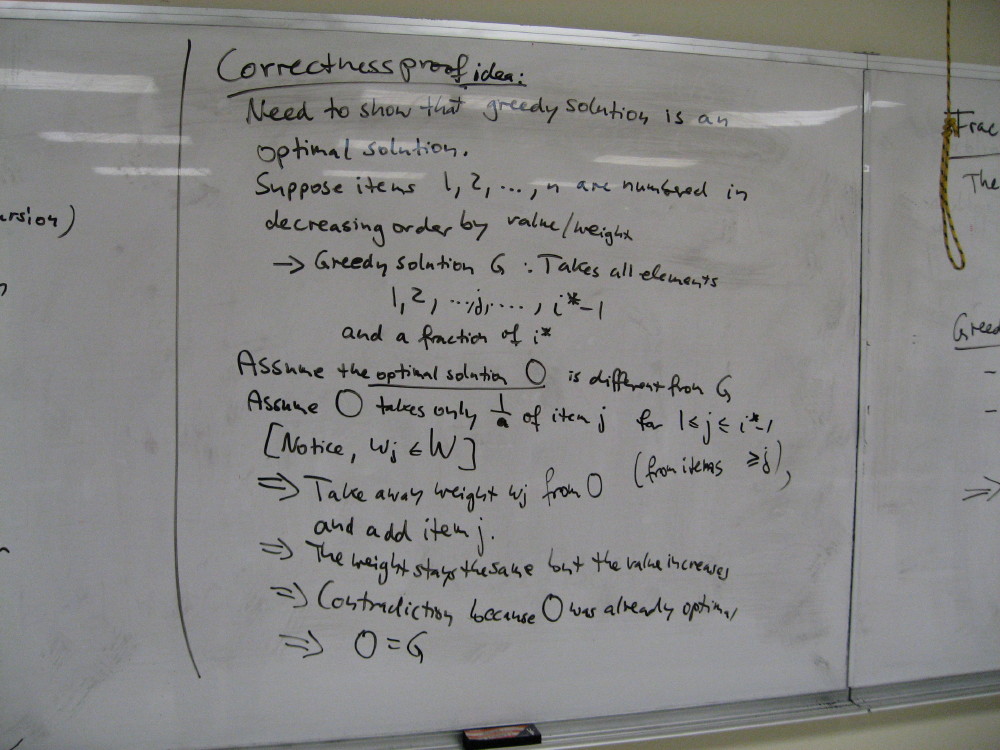 Correctness proof idea:
Need to show that greedy solution is an
optimal solution.
Suppose items 1, 2, ..., n are numbered in
decreasing order by value/weight
→ Greedy solution G : Takes all elements
1, 2, ..., j, ...., i*-1
and a fraction of i*
Assume the optimal solution O is different from G
Assume O takes only 1/a of item j for 1 ≤ j ≤ i*-1
[Notice, wj ≤ W]
⇒ Take away weight wj from O (from items ≥ j),
and add item j.
⇒ The weight stays the same but the value increases
⇒ Contradiction because O was already optimal
⇒ O = G
ursion)
Frac
The
Greed
-
-
⇒